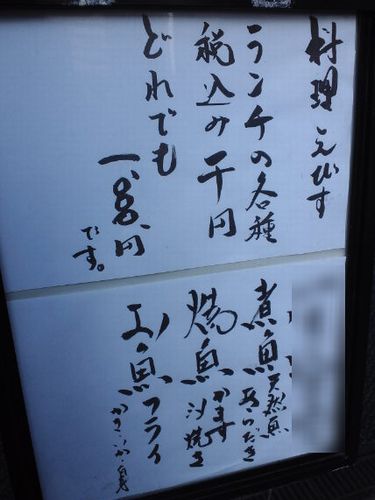 料理 えびす
ランチの各種
税込み 千円
どれでも
一、〇〇〇円
です。
煮魚 天然魚
あらだき
焼魚 かます
汐焼き
魚フライ